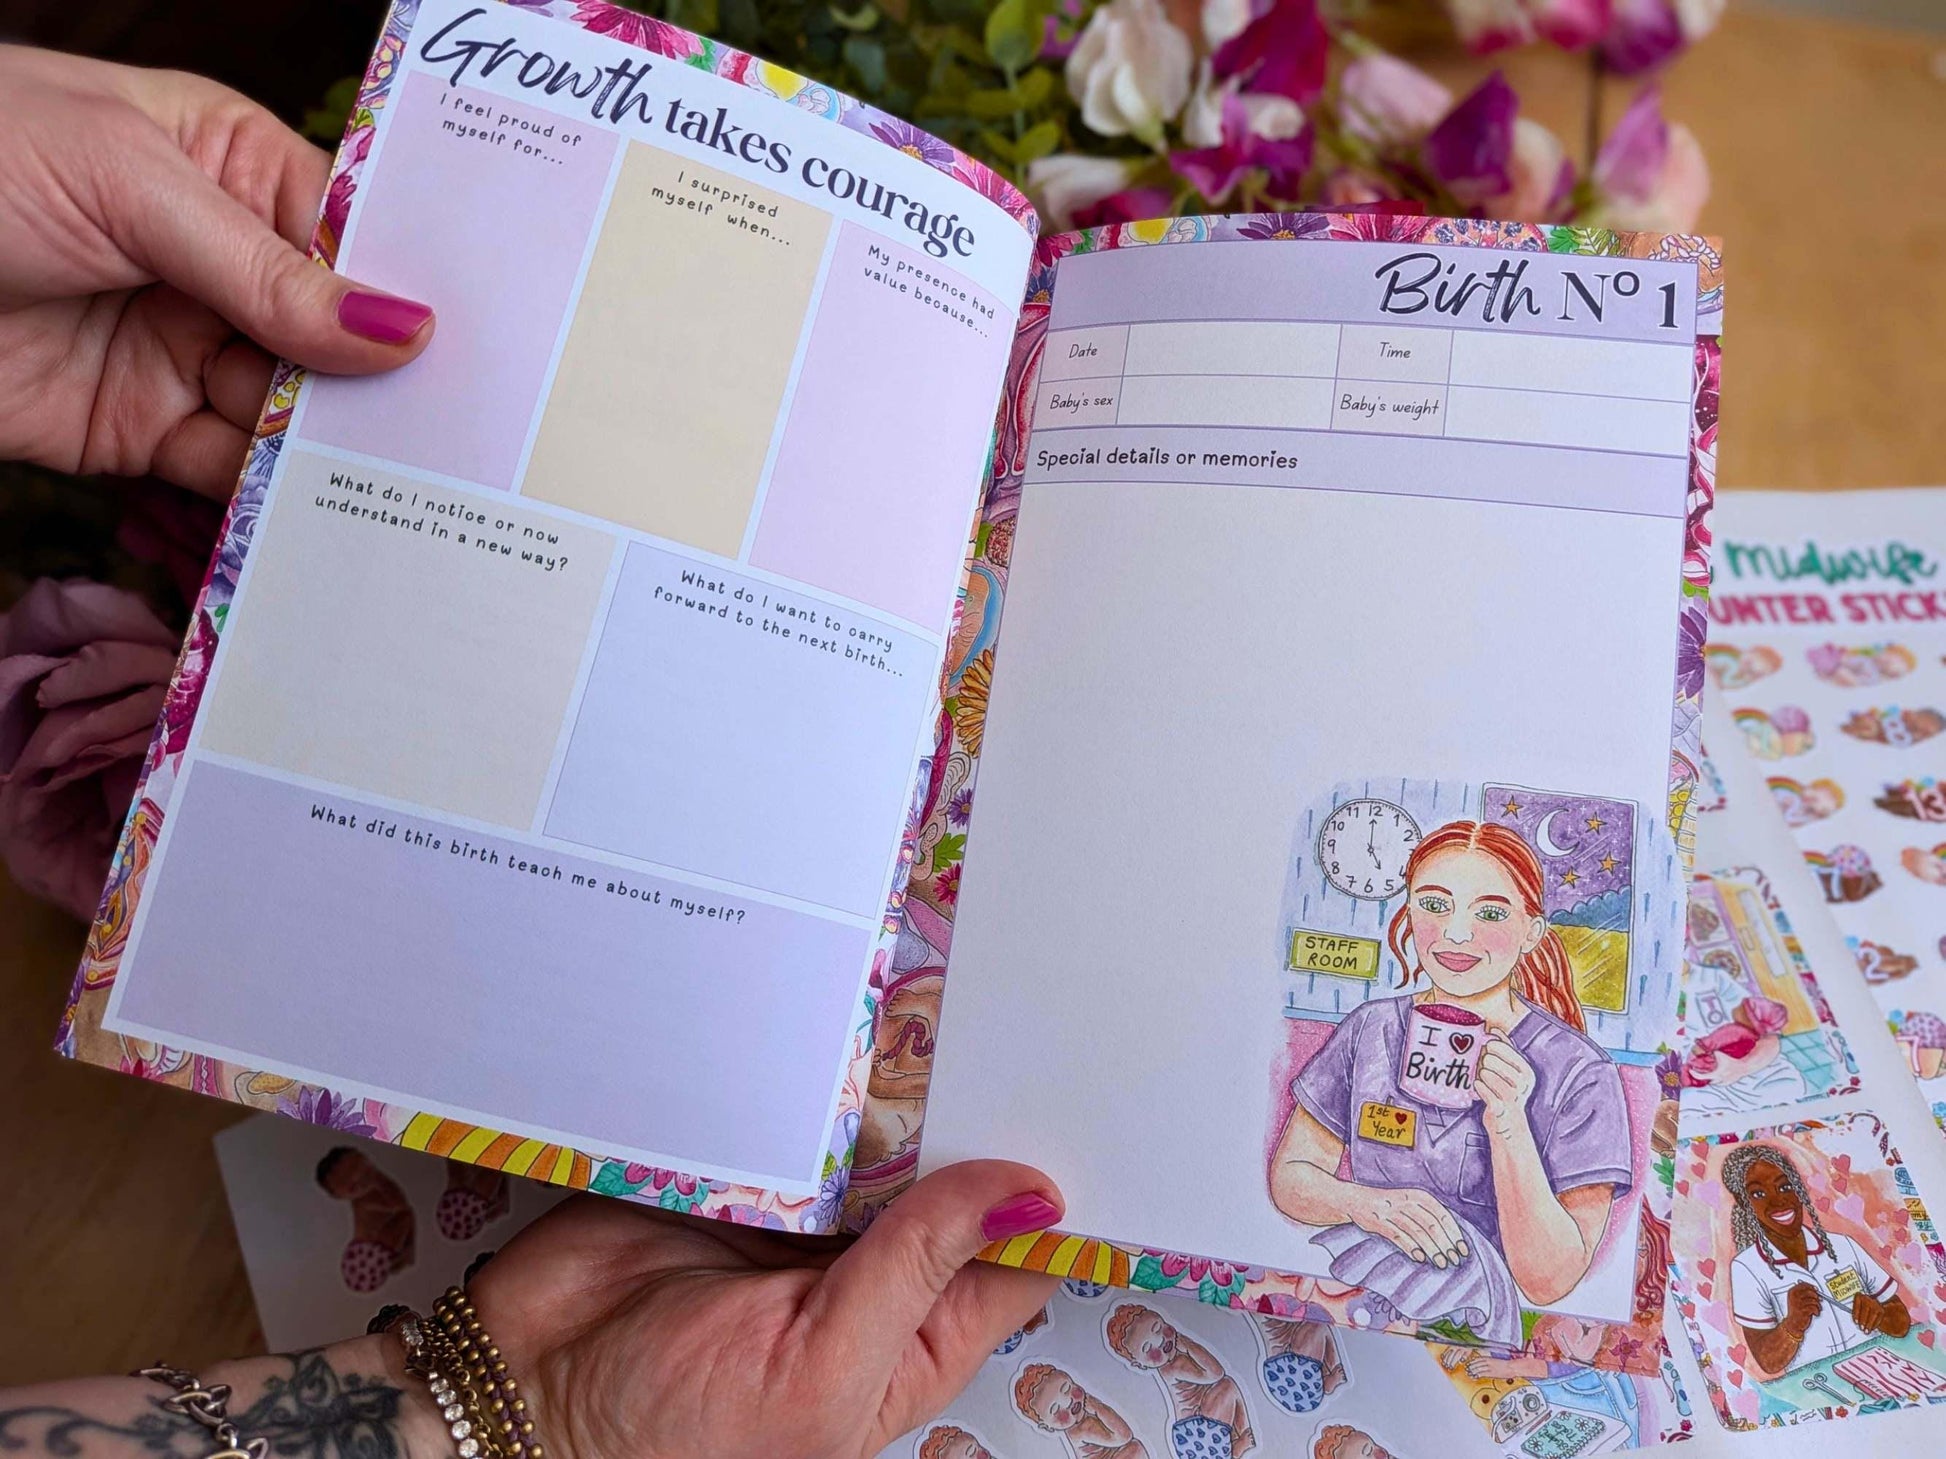 Growth takes courage
I feel proud of
myself for...
I surprised
myself when...
My presence had
value because...
What do I notice or now
understand in a new way?
What do I want to carry
forward to the next birth...
What did this birth teach me about myself?
Birth Nº 1
Date
Time
Baby's sex
Baby's weight
Special details or memories
11 12 1
10 2
9
8 4
7 6 5
STAFF
ROOM
I ♥
Birth
1st ♥
Year
Midwife
UNTER STICK
Student
Midwife